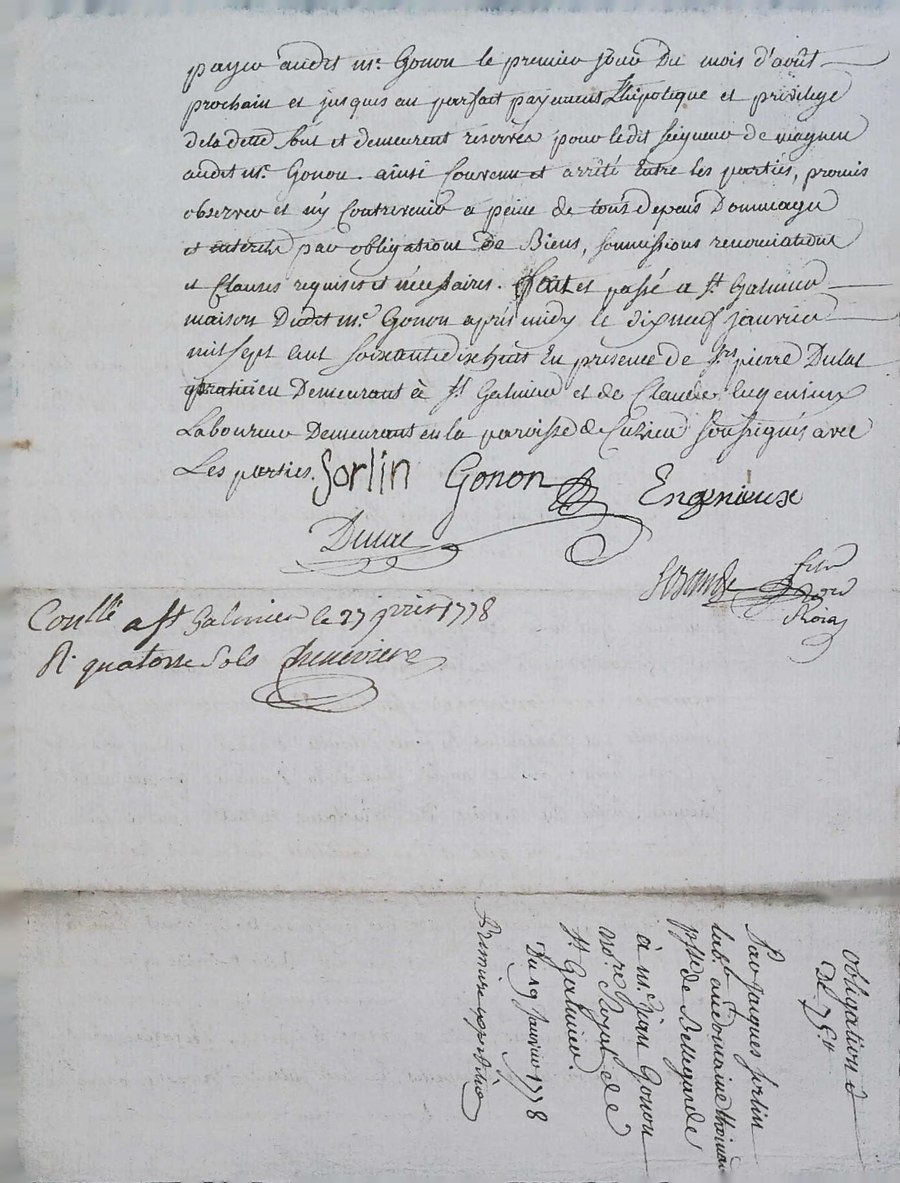 payer audit me. Gonon le premier jour du mois d'août
prochain et jusques au parfait payement Lhipoteque et privilege
de la dette sont et demeurent réservés pour ledit seigneur de magneu
audit me. Gonon. ainsi Convenu et arrêté Entre les parties, promis
observer et n'y Contrevenir a peine de tous depens Dommages
et interets par obligations de Biens, soumissions renonciations
et Clauses requises et nécessaires. fait et passé a st. Galmier
maison Dudit me. Gonon après midy le dixneuf janvier
mil sept cent soixante dix huit En présence de sr. pierre Dulac
praticien Demeurant à st Galmier et de Claude Engenieux
Laboureur Demeurant en la paroisse de Cuzieu soussignés avec
Les parties. Sorlin Gonon Engenieux
Dulac
nore
Roial
Conllé a st Galmier le 27 jvier 1778
R. quatorze sols Cheneviere
obligation de
De 75 lt
Par jaques sorlin
lab. au domaine
psse de Bellegarde
à me. jean Gonon
nore. Royal de
st Galmier.
Du 19 janvier 1778
Premiere expedition